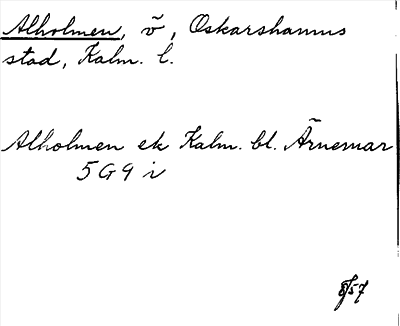 Alholmen, ṽ, Oskarshamns
stad, Kalm. l.
Alholmen ek Kalm. bl. Ärnemar
5G9 i